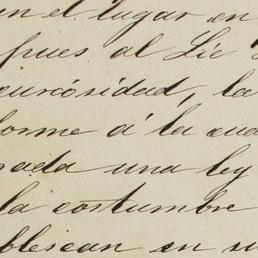 un el lugar en
pues al Lic
curiosidad, la
forme á la cua
rada una ley
la costumbre
blescan en su